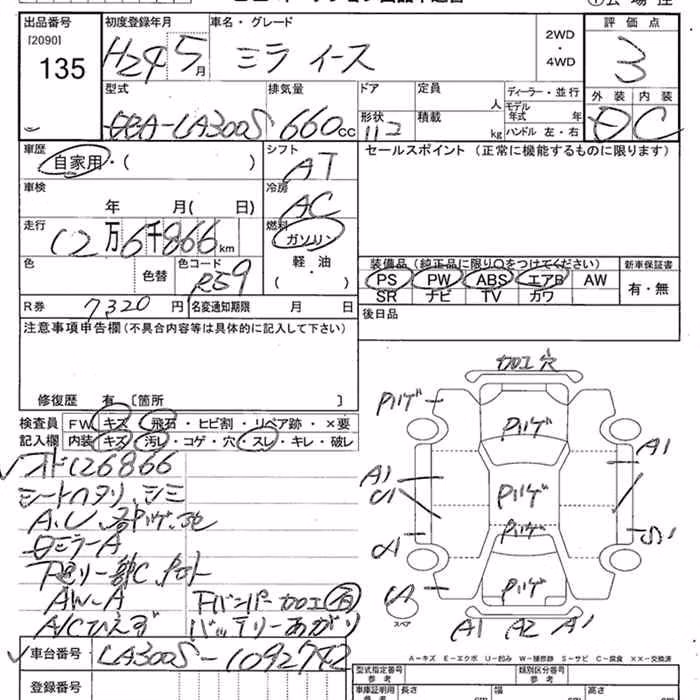 出品番号 初度登録年月 車名・グレード 2WD ・ 4WD 評価点
[2090] 135 H24 5月 ミラ イース 3
型式 排気量 ドア 定員 人 ディーラー・並行 外装 内装
DBA-LA300S 660cc 形状 積載 kg モデル年式 年 ハンドル 左・右 D C
車歴 自家用・( ) シフト AT セールスポイント (正常に機能するものに限ります)
車検 年 月( 日) 冷房 AC
走行 12万6千866km 燃料 ガソリン
色 色替 色コード R59 軽・油 ( )
装備品 (純正品に限り〇をつけてください) 新車保証書
PS PW ABS エアB AW 有・無
SR ナビ TV カワ
R券 7320円 名変通知期限 月 日 後日品
注意事項申告欄 (不具合内容等は具体的に記入して下さい)
修復歴 有 [箇所 ]
検査員 FW キズ・飛石・ヒビ割・リペア跡・×要
記入欄 内装 キズ・汚レ・コゲ・穴・スレ・キレ・破レ
126866
シートヘタリ、シミ
A.U
ミラーA
AW-A 下バンパー加工有
A/Cひえず バッテリーあがり
加工穴
Pハゲ
Pハゲ
A1
A1
Pハゲ
Pハゲ
S1
Pハゲ
スペア
A1 A2 A1
A-キズ E-エクボ U-凹み W-補修跡 S-サビ C-腐食 ××-交換済
車台番号 LA300S-1092742 型式指定番号 参考 類別区分番号 参考
登録番号 車庫証明用 参考 長さ cm 幅 cm 高さ cm